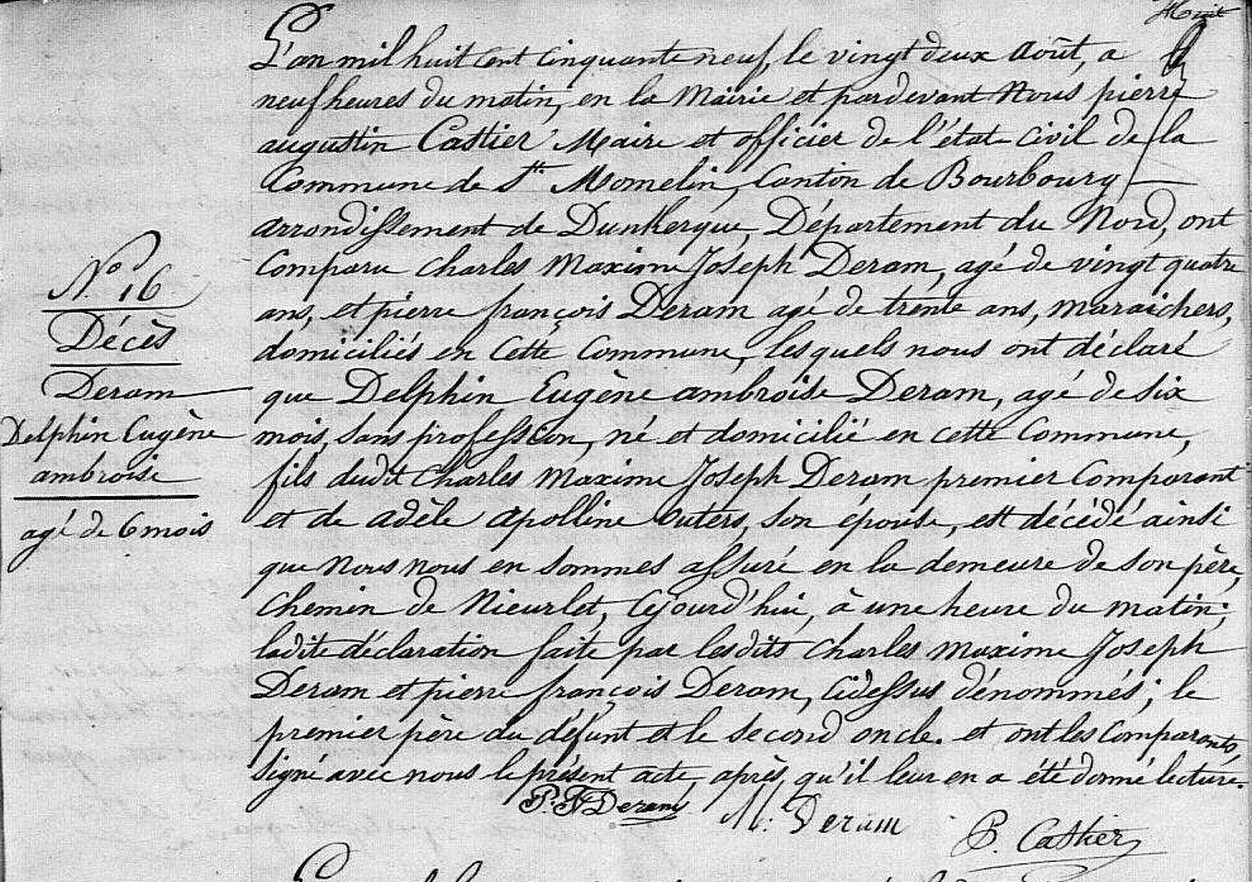 huit
L'an mil huit cent cinquante neuf, le vingt deux août, a
neuf heures du matin, en la Mairie et pardevant Nous pierre
augustin Castier Maire et officier de l'état civil de la
Commune de St. Momelin, Canton de Bourbourg —
arrondissement de Dunkerque, Département du Nord, ont
Comparu charles Maxime Joseph Deram, agé de vingt quatre
ans, et pierre françois Deram agé de trente ans, maraichers,
domiciliés en Cette Commune, lesquels nous ont déclaré
que Delphin Eugène ambroise Deram, agé de six
mois, sans profession, né et domicilié en cette Commune,
fils dudit Charles Maxime Joseph Deram premier Comparant
et de adèle apolline Outers, son épouse, est décédé ainsi
que Nous nous en sommes assuré en la demeure de son père,
Chemin de Nieurlet, Cejourd'hui, à une heure du matin;
ladite déclaration faite par lesdits Charles Maxime Joseph
Deram et pierre françois Deram, Cidessus dénommés; le
premier père du défunt et le second oncle. et ont les Comparants
signé avec nous le présent acte, après qu'il leur en a été donné lecture.
P. F Deram M. Deram P. Castier
N.° 16
Décès
Deram
Delphin Eugène
ambroise
agé de 6 mois